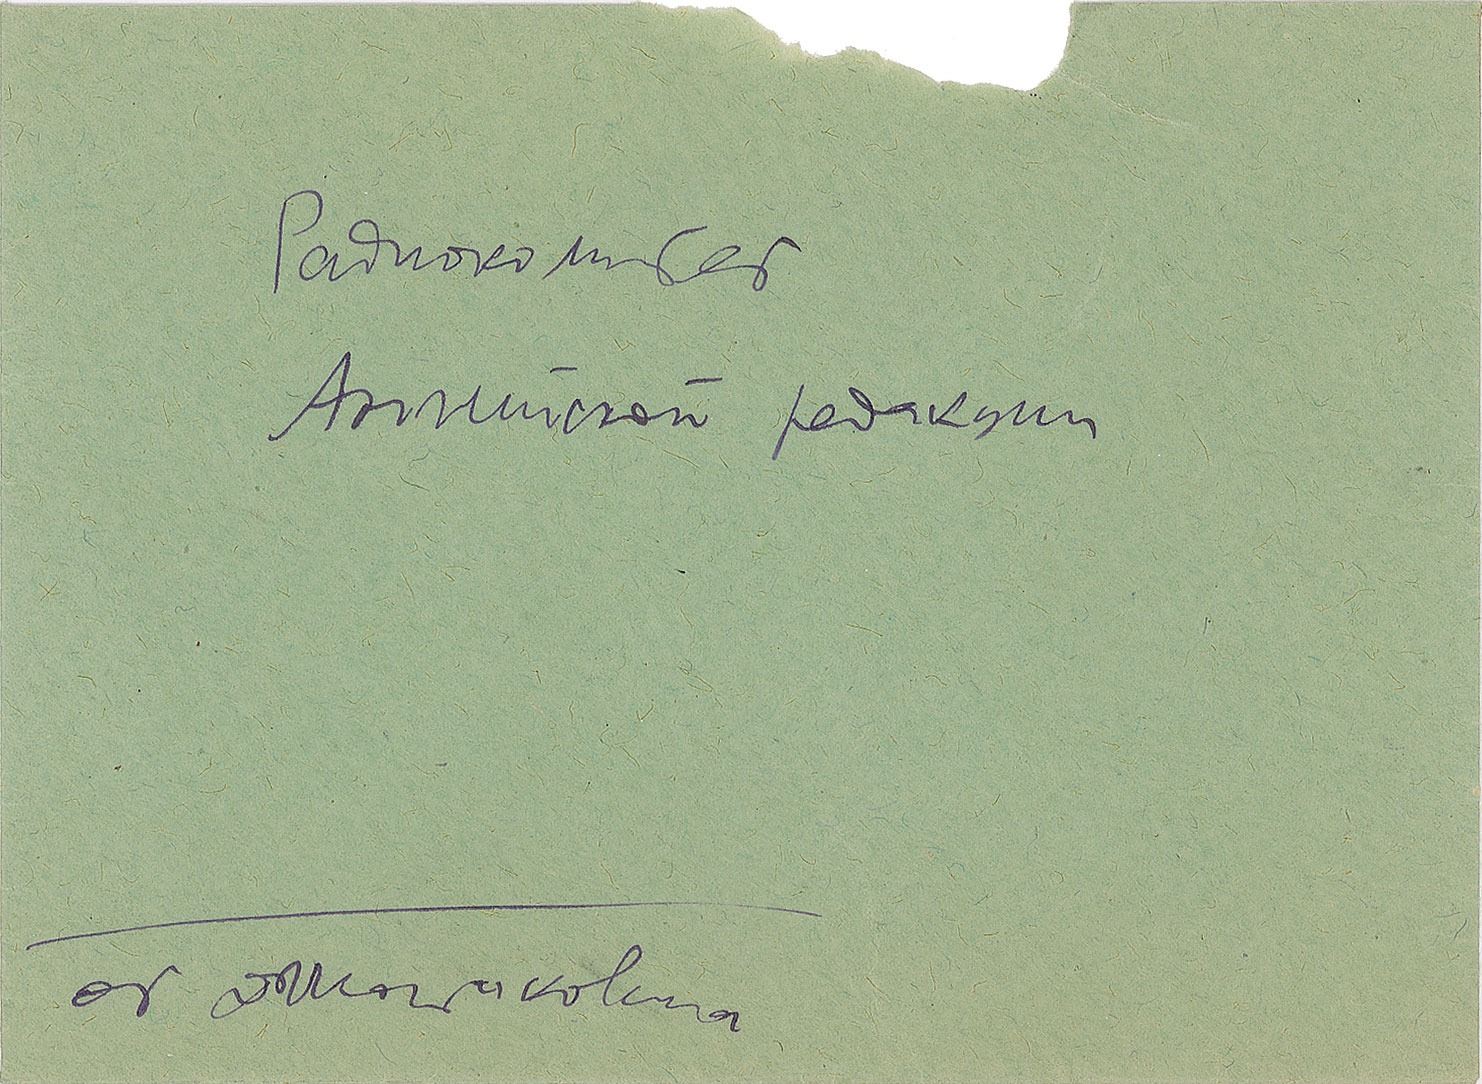 Радиокомитет
Английской редакции
от Д Шостаковича